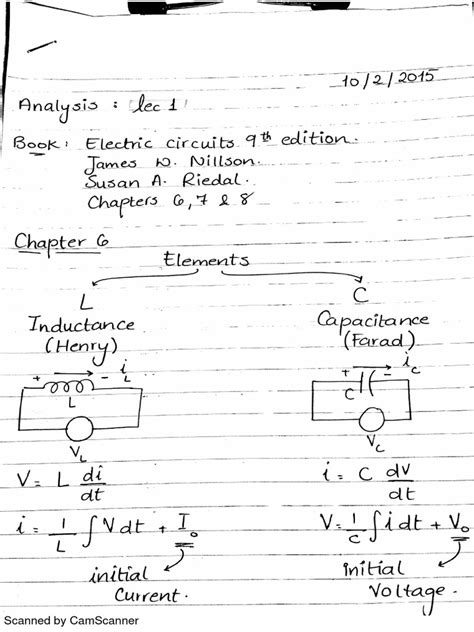 10/2/2015
Analysis : lec 1
Book: Electric circuits 9th edition.
James W. Nillson.
Susan A. Riedal.
Chapters 6, 7 & 8
Chapter 6
Elements
L
Inductance
(Henry)
+ - i_L
L
V_L
V = L di/dt
i = 1/L ∫ V dt + I_o
initial
Current.
C
Capacitance
(Farad)
+ - i_C
C
V_C
i = C dv/dt
V = 1/C ∫ i dt + V_o
initial
Voltage.
Scanned by CamScanner